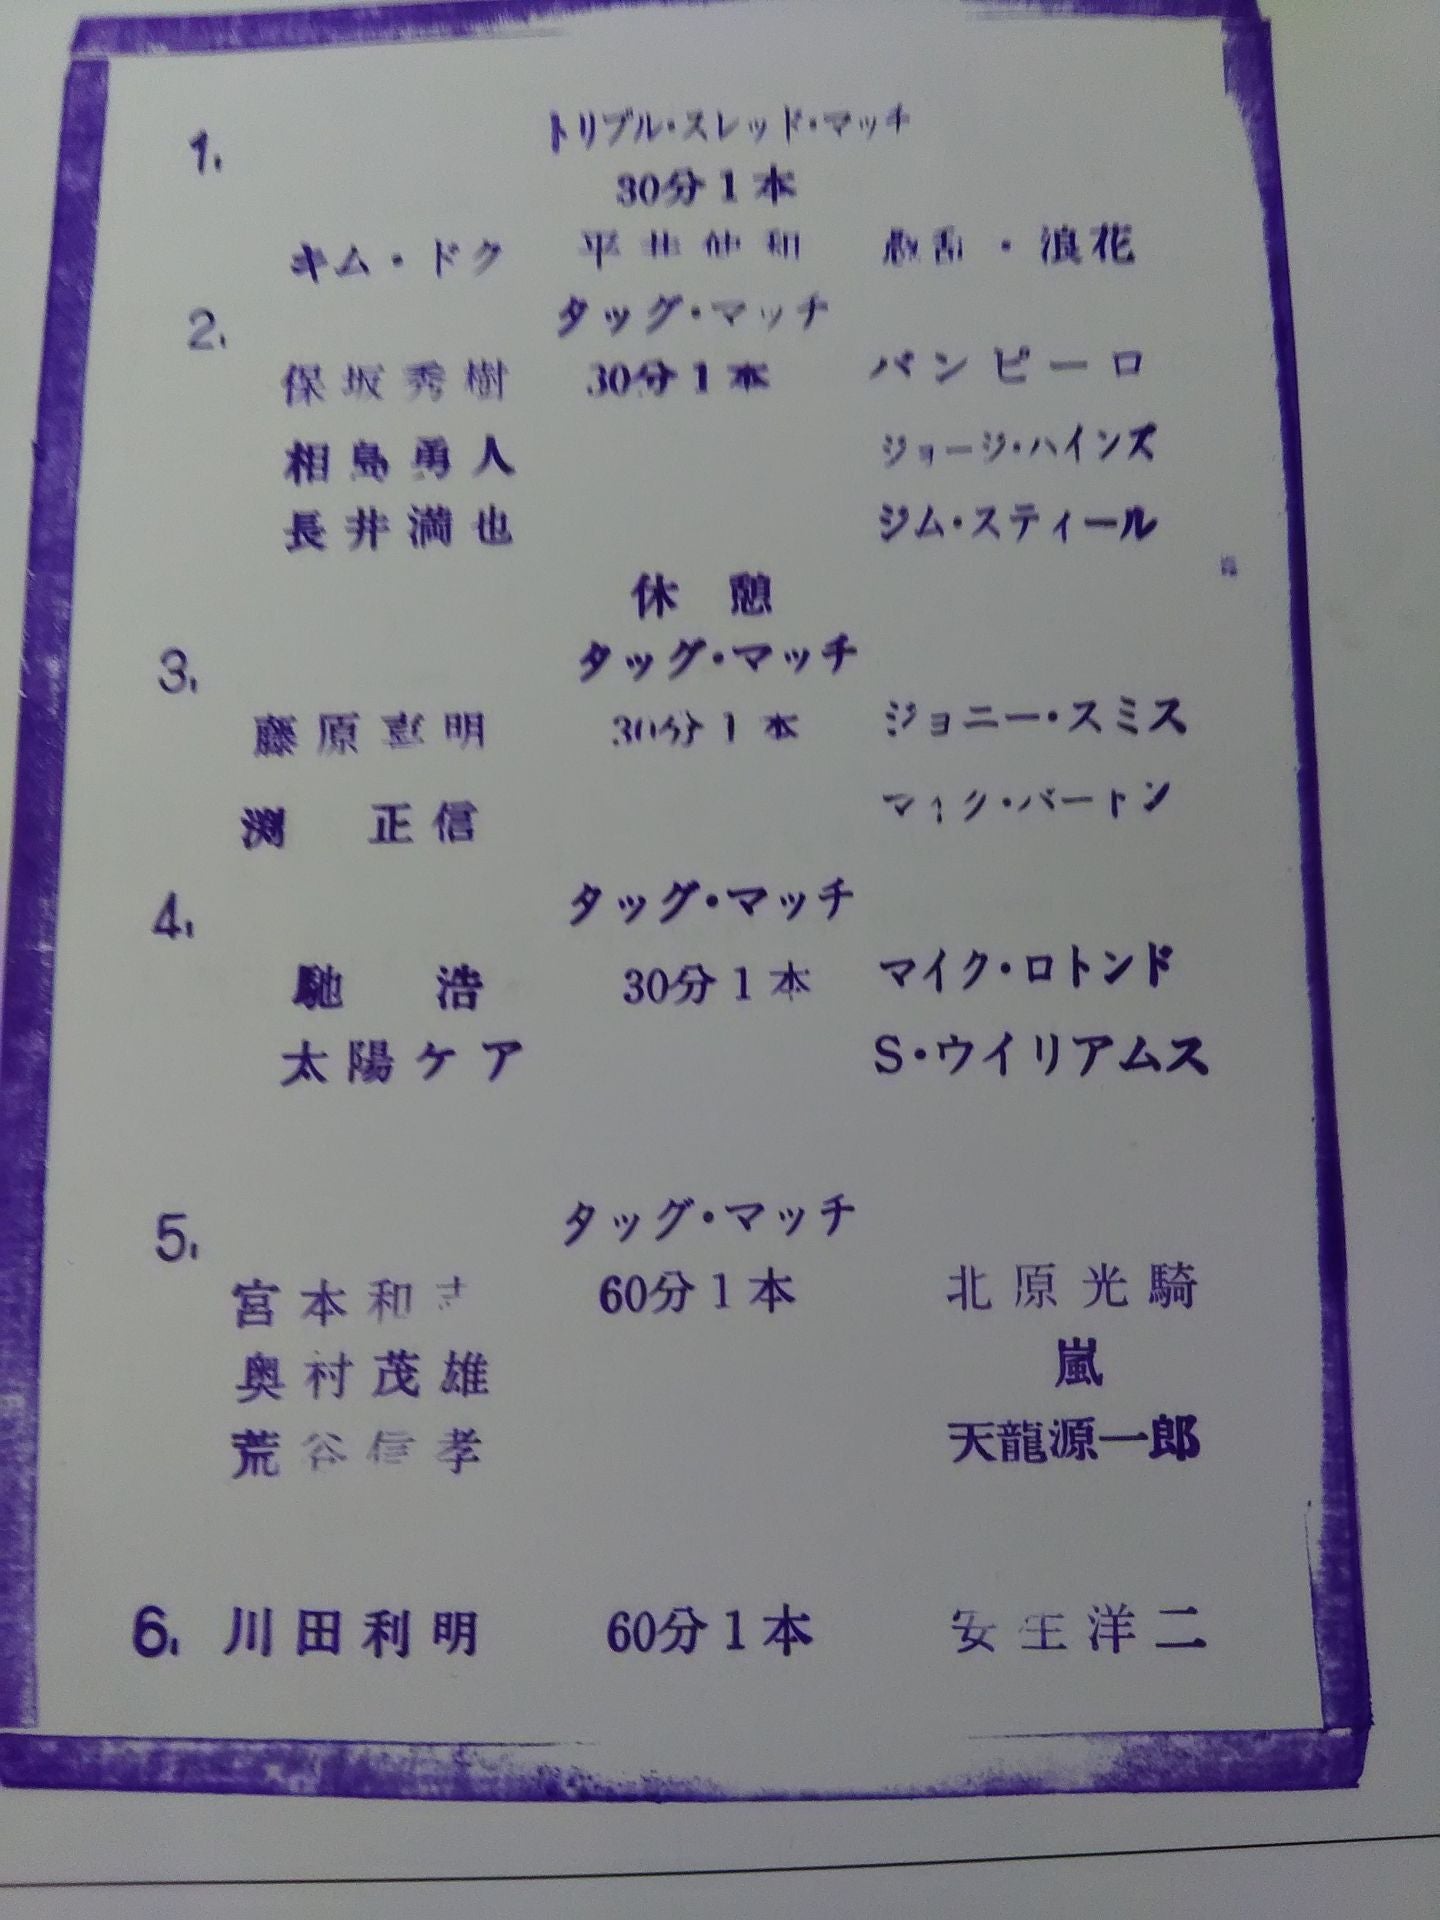 1.
トリプル・スレッド・マッチ
30分1本
キム・ドク 平井伸和 愚乱・浪花
2.
タッグ・マッチ
保坂秀樹 30分1本 バンピーロ
相島勇人 ジョージ・ハインズ
長井満也 ジム・スティール
休憩
3.
タッグ・マッチ
藤原喜明 30分1本 ジョニー・スミス
渕 正信 マイク・バートン
4.
タッグ・マッチ
馳 浩 30分1本 マイク・ロトンド
太陽ケア S・ウイリアムス
5.
タッグ・マッチ
宮本和志 60分1本 北原光騎
奥村茂雄 嵐
荒谷信孝 天龍源一郎
6. 川田利明 60分1本 安生洋二